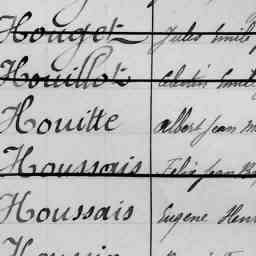 Hougot Jules Emile
Houillot Célestin Emile
Houitte Albert Jean M
Houssais Felix Jean B
Houssais Eugene Henri